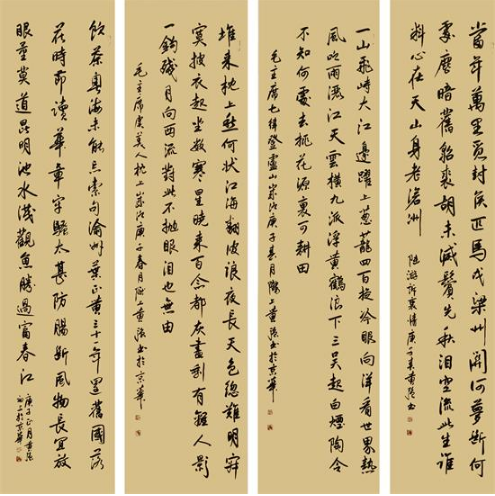 當年萬里覓封侯匹馬戍梁州關河夢斷何
處塵暗舊貂裘胡未滅鬢先秋淚空流此生誰
料心在天山身老滄洲 陸游訴衷情庚子春黃強書
一山飛峙大江邊躍上蔥蘢四百旋冷眼向洋看世界熱
風吹雨灑江天雲橫九派浮黃鶴浪下三吳起白煙陶令
不知何處去桃花源裏可耕田
毛主席七律登廬山庚子春月隴上黃強書於京華
堆來枕上愁何狀江海翻波浪夜長天色總難明寂
寞披衣起坐數寒星曉來百念都灰盡剩有離人影
一鉤殘月向西流對此不拋眼淚也無由
毛主席虞美人枕上庚子春月隴上黃強書於京華
飲茶粵海未能忘索句渝州葉正黃三十一年還舊國落
花時節讀華章牢騷太甚防腸斷風物長宜放
眼量莫道昆明池水淺觀魚勝過富春江
庚子正月黃強
於京華